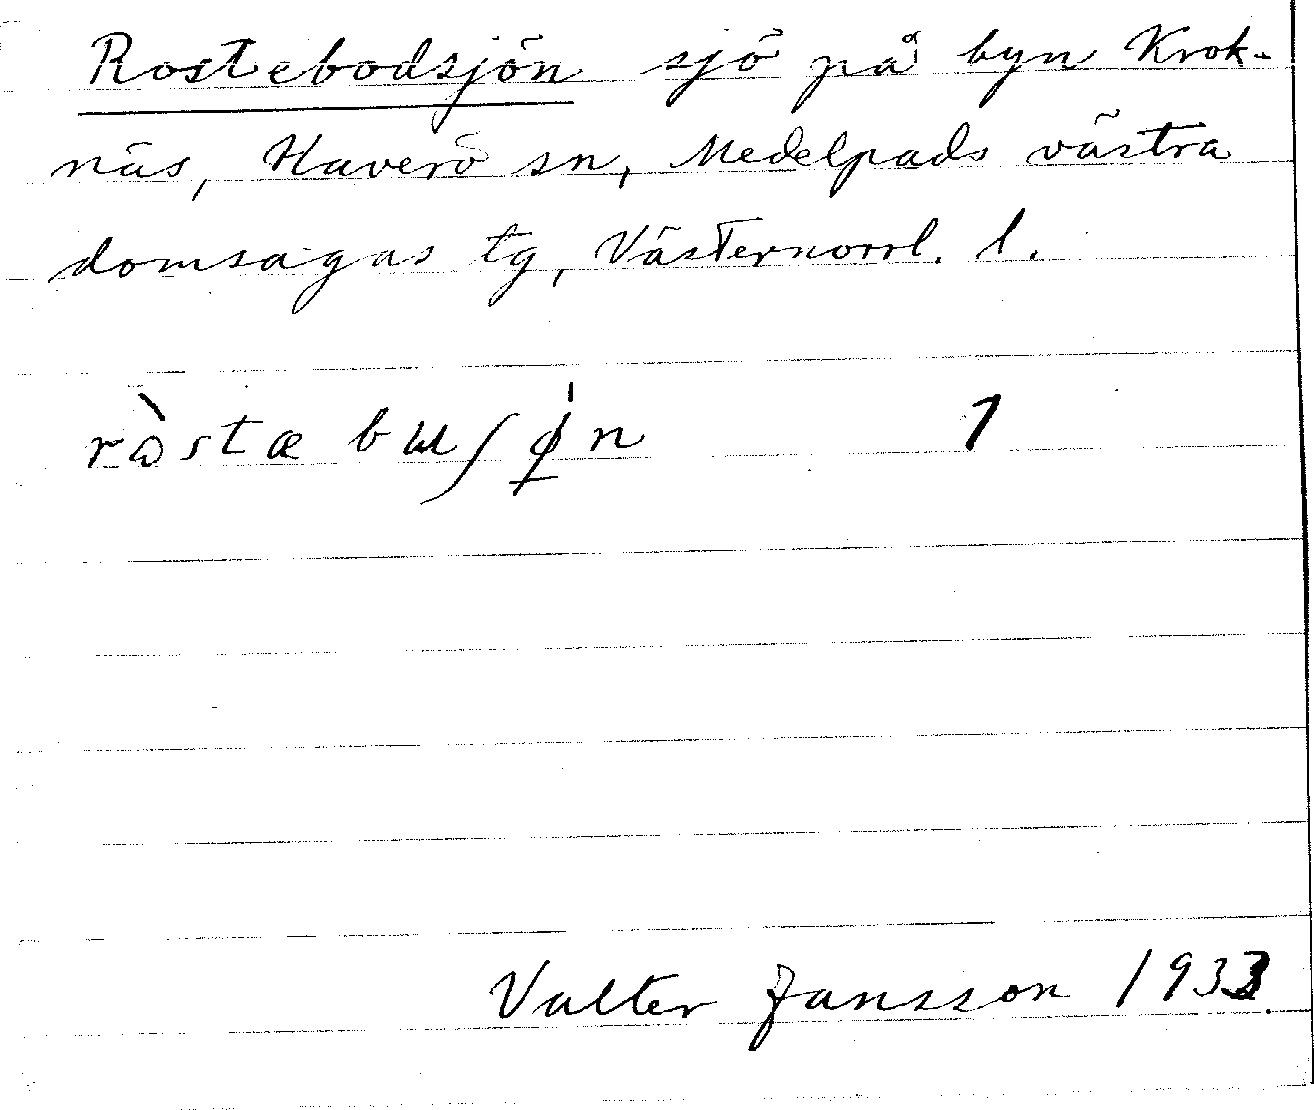 Rostebodsjön sjö på byn Krok-
näs, Haverö sn, Medelpads västra
domsagas tg, Västernorrl. l.
1
Valter Jansson 1933.